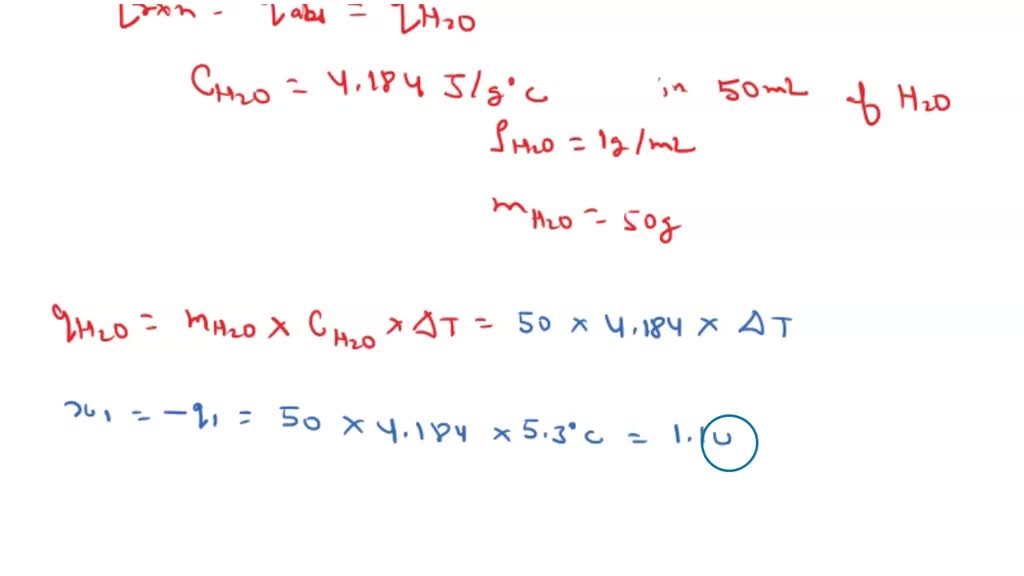 qrxn = qabs = qH2O
CH2O = 4.184 J/g°C in 50mL of H2O
ρH2O = 1g/mL
mH2O = 50g
qH2O = mH2O × CH2O × ΔT = 50 × 4.184 × ΔT
= -q1 = 50 × 4.184 × 5.3°C = 1.10